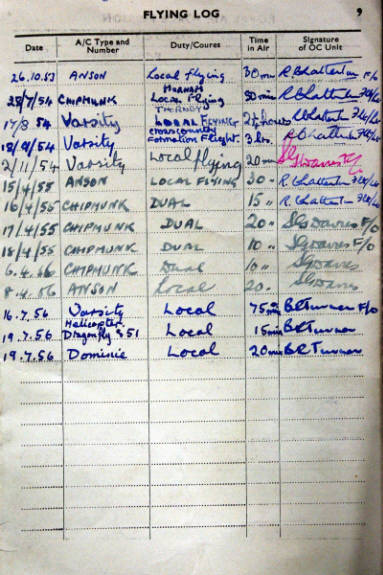 FLYING LOG 9
Date A/C Type and Number Duty/Coures Time in Air Signature of OC Unit
26.10.53 ANSON Local flying 30 min R Chatterton F/O
HORHAM
28/7/54 CHIPMUNK Local flying 30 min R Chatterton Flt/Lt
THORNEY
17/8/54 Varsity LOCAL FLYING 2½ hours R Chatterton Flt/Lt
cross country
18/9/54 Varsity Formation Flight. 3 hrs. R Chatterton Flt/Lt
2/11/54 Varsity Local flying 20 min SG Davies
15/4/55 ANSON LOCAL FLYING 30 " R. Chatterton Flt/Lt
16/4/55 CHIPMUNK DUAL 15 " R. Chatterton Flt/Lt
17/4/55 CHIPMUNK DUAL 20 " SG Davies F/O
18/4/55 CHIPMUNK DUAL 10 " SG Davies F/O
6.4.56 CHIPMUNK Dual 10 " SG Davies
8.4.56 ANSON Local 20 " SG Davies
16.7.56 Varsity Local 75 min B R Turner F/O
Helicopter
19.7.56 Dragonfly S51 Local 15 min B R Turner
19.7.56 Dominie Local 20 min B R Turner